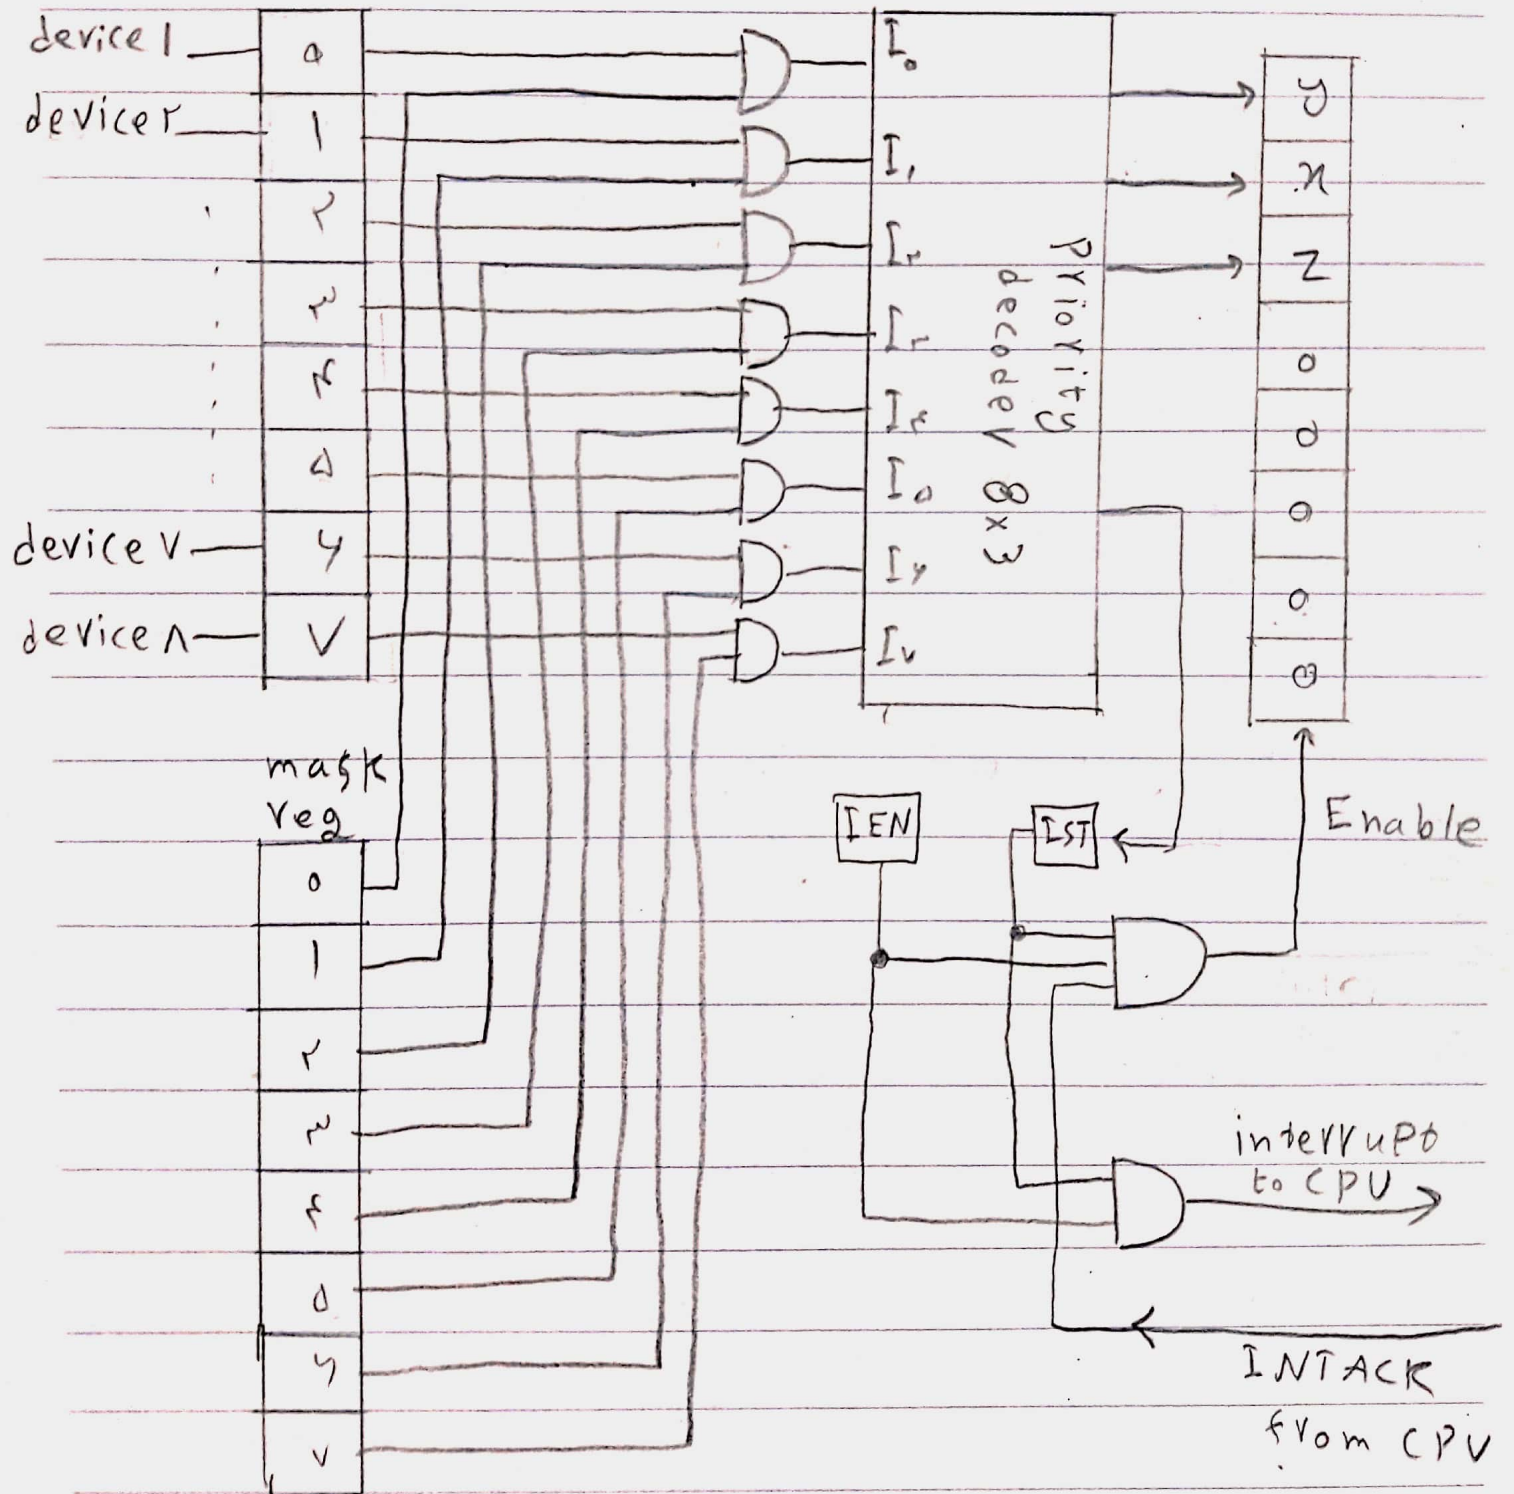 device ۱
device ۲
device ۷
device ۸
۰
۱
۲
۳
۴
۵
۶
۷
I۰
I۱
I۲
I۳
I۴
I۵
I۶
I۷
Priority
decoder 8x3
y
x
z
0
0
0
0
0
mask
reg
۰
۱
۲
۳
۴
۵
۶
۷
IEN
IST
Enable
interrupt
to CPU
INTACK
from CPU